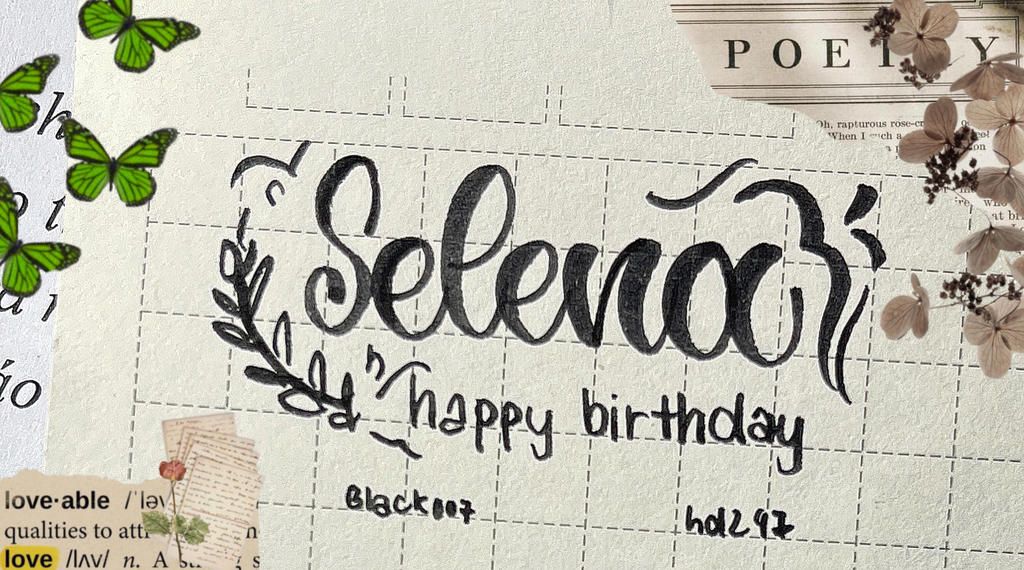 POETRY
Oh, rapturous
When I such a
h
Selena
happy birthday
Black007 hdl297
áo
love·able /ˈləv
qualities to att
love /lʌv/ n. A